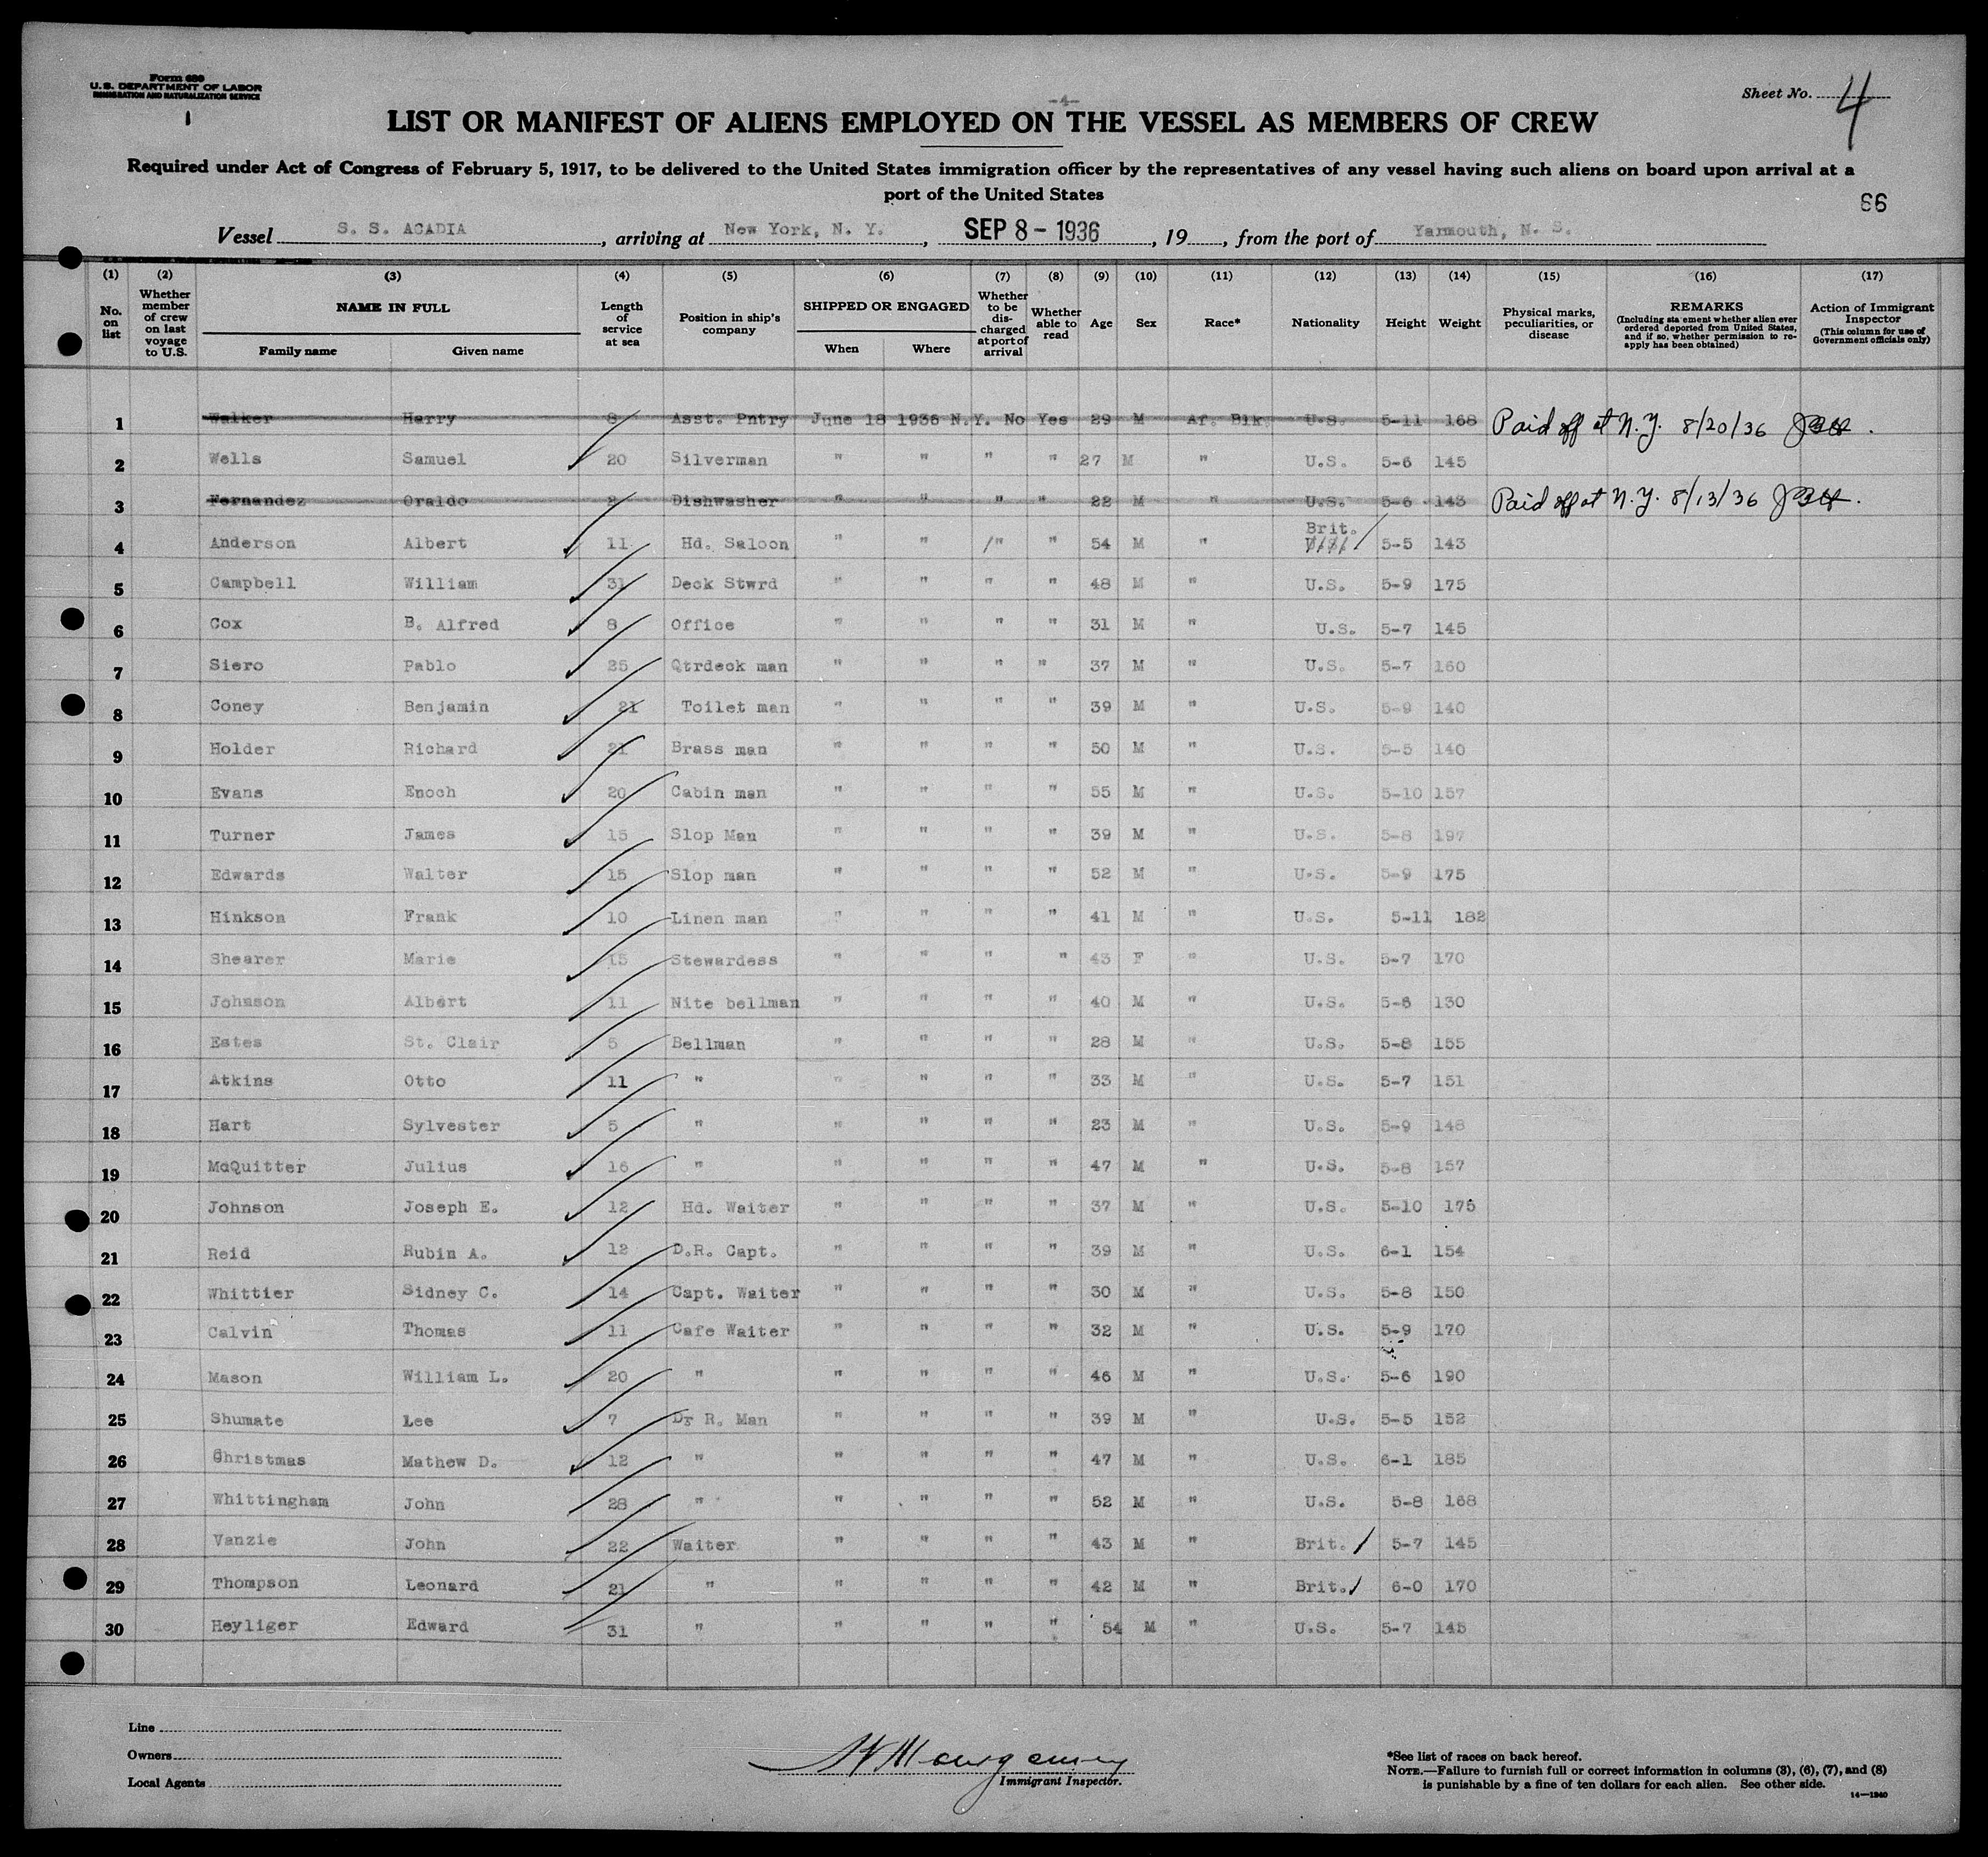 Form 680
U. S. DEPARTMENT OF LABOR
IMMIGRATION AND NATURALIZATION SERVICE
1
-4-
Sheet No. 4
LIST OR MANIFEST OF ALIENS EMPLOYED ON THE VESSEL AS MEMBERS OF CREW
Required under Act of Congress of February 5, 1917, to be delivered to the United States immigration officer by the representatives of any vessel having such aliens on board upon arrival at a
port of the United States
66
Vessel S. S. ACADIA, arriving at New York, N. Y., SEP 8 - 1936, 19, from the port of Yarmouth, N. S.
(1) (2) (3) (4) (5) (6) (7) (8) (9) (10) (11) (12) (13) (14) (15) (16) (17)
No. on list
Whether member of crew on last voyage to U.S.
NAME IN FULL
Family name Given name
Length of service at sea
Position in ship's company
SHIPPED OR ENGAGED
When Where
Whether to be discharged at port of arrival
Whether able to read
Age
Sex
Race*
Nationality
Height
Weight
Physical marks, peculiarities, or disease
REMARKS
(Including statement whether alien ever ordered deported from United States, and if so, whether permission to re-apply has been obtained)
Action of Immigrant Inspector
(This column for use of Government officials only)
1 Walker Harry 8 Asst. Pntry June 18 1936 N.Y. No Yes 29 M Af. Blk U.S. 5-11 168 Paid off at N.Y. 8/20/36
2 Wells Samuel 20 Silverman " " " " 27 M " U.S. 5-6 145
3 Fernandez Oraldo 2 Dishwasher " " " " 22 M " U.S. 5-6 143 Paid off at N.Y. 8/13/36
4 Anderson Albert 11 Hd. Saloon " " " " 54 M " Brit. 5-5 143
5 Campbell William 31 Deck Stwrd " " " " 48 M " U.S. 5-9 175
6 Cox B. Alfred 8 Office " " " " 31 M " U.S. 5-7 145
7 Siero Pablo 25 Qtrdeck man " " " " 37 M " U.S. 5-7 160
8 Coney Benjamin 21 Toilet man " " " " 39 M " U.S. 5-9 140
9 Holder Richard 21 Brass man " " " " 50 M " U.S. 5-5 140
10 Evans Enoch 20 Cabin man " " " " 55 M " U.S. 5-10 157
11 Turner James 15 Slop Man " " " " 39 M " U.S. 5-8 197
12 Edwards Walter 15 Slop man " " " " 52 M " U.S. 5-9 175
13 Hinkson Frank 10 Linen man " " " " 41 M " U.S. 5-11 182
14 Shearer Marie 15 Stewardess " " " " 43 F " U.S. 5-7 170
15 Johnson Albert 11 Nite bellman " " " " 40 M " U.S. 5-6 130
16 Estes St. Clair 5 Bellman " " " " 28 M " U.S. 5-8 155
17 Atkins Otto 11 " " " " " 33 M " U.S. 5-7 151
18 Hart Sylvester 5 " " " " " 23 M " U.S. 5-9 148
19 McQuitter Julius 16 " " " " " 47 M " U.S. 5-8 157
20 Johnson Joseph E. 12 Hd. Waiter " " " " 37 M " U.S. 5-10 175
21 Reid Rubin A. 12 D.R. Capt. " " " " 39 M " U.S. 6-1 154
22 Whittier Sidney C. 14 Capt. Waiter " " " " 30 M " U.S. 5-8 150
23 Calvin Thomas 11 Cafe Waiter " " " " 32 M " U.S. 5-9 170
24 Mason William L. 20 " " " " " 46 M " U.S. 5-6 190
25 Shumate Lee 7 D. R. Man " " " " 39 M " U.S. 5-5 152
26 Christmas Mathew D. 12 " " " " " 47 M " U.S. 6-1 185
27 Whittingham John 28 " " " " " 52 M " U.S. 5-8 168
28 Vanzie John 22 Waiter " " " " 43 M " Brit. 5-7 145
29 Thompson Leonard 21 " " " " " 42 M " Brit. 6-0 170
30 Heyliger Edward 31 " " " " " 54 M " U.S. 5-7 145
Line
Owners
Local Agents
Immigrant Inspector.
*See list of races on back hereof.
NOTE.—Failure to furnish full or correct information in columns (3), (6), (7), and (8)
is punishable by a fine of ten dollars for each alien. See other side.
14—1240